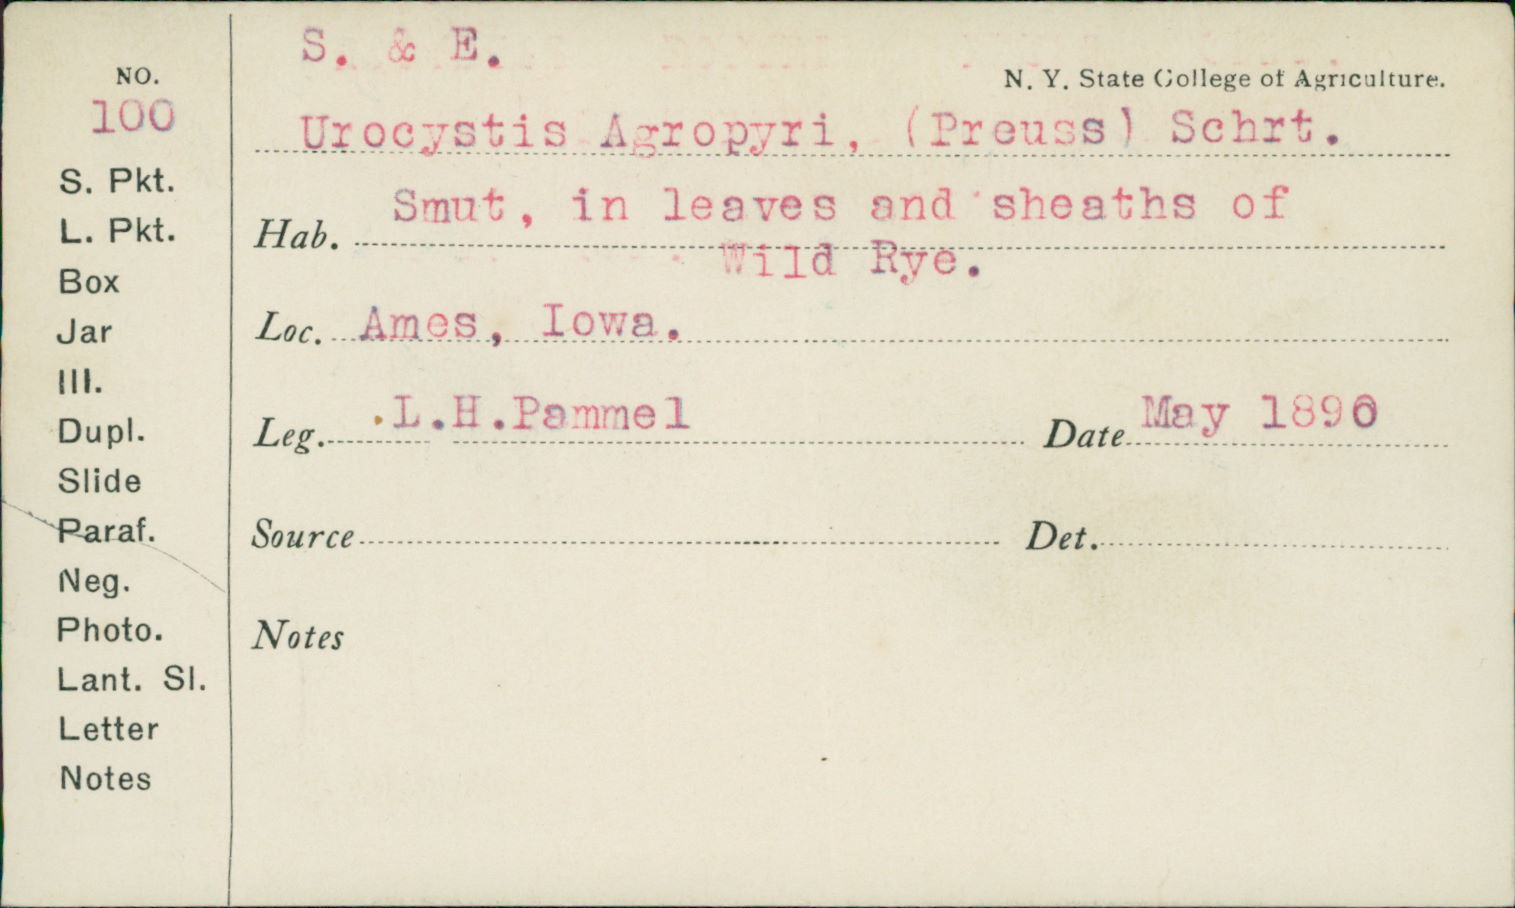 S. & E.
NO.
N. Y. State College of Agriculture.
100
Urocystis Agropyri, (Preuss) Schrt.
S. Pkt.
L. Pkt.
Box
Jar
Ill.
Dupl.
Slide
Paraf.
Neg.
Photo.
Lant. Sl.
Letter
Notes
Hab. Smut, in leaves and sheaths of
Wild Rye.
Loc. Ames, Iowa.
Leg. L.H.Pammel Date May 1890
Source Det.
Notes